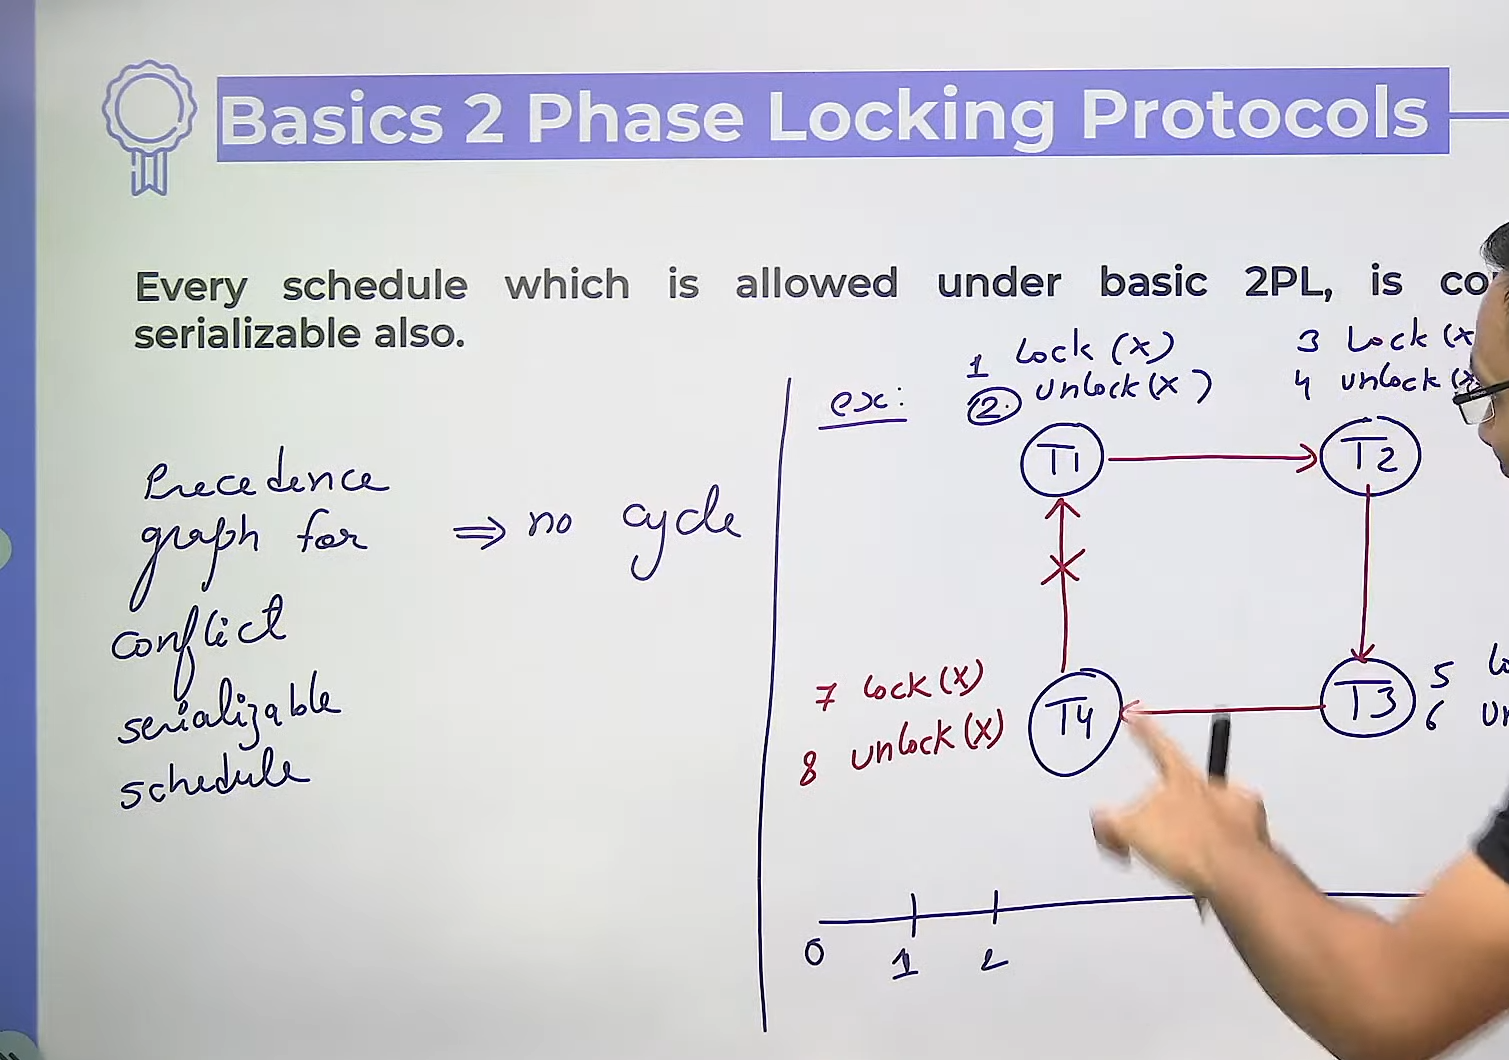 Basics 2 Phase Locking Protocols
Every schedule which is allowed under basic 2PL, is co
serializable also.
Precedence
graph for ⇒ no cycle
conflict
serializable
schedule
ex:
1 Lock (x)
2. Unlock (x)
3 Lock (x
4 Unlock (x
T1
T2
7 Lock (x)
8 Unlock (x)
T4
T3
5 Lo
6 Un
0 1 2